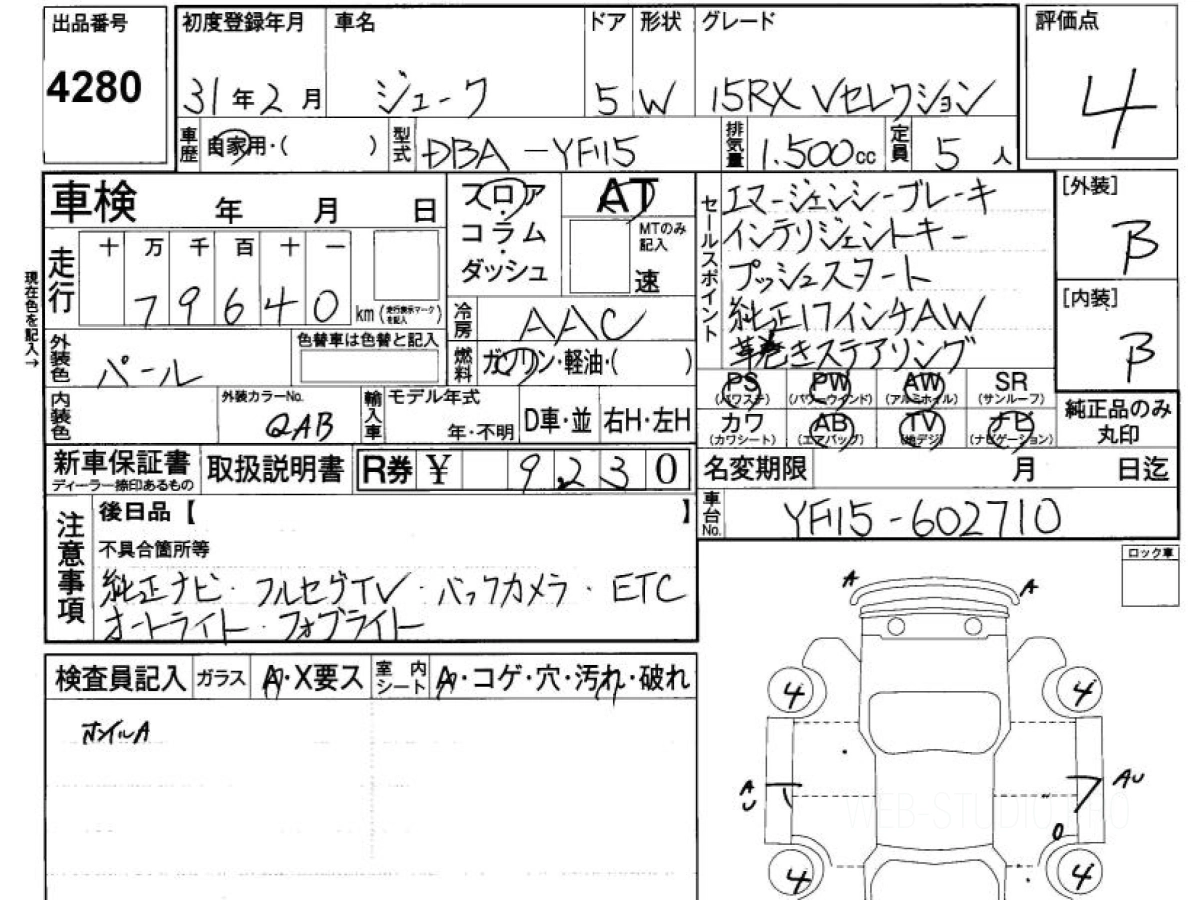 出品番号 初度登録年月 車名 ドア 形状 グレード 評価点
4280 31年2月 ジューク 5 W 15RX Vセレクション 4
車歴 自家用・( ) 型式 DBA-YF15 排気量 1.500cc 定員 5人
車検 年 月 日
スロア・コラム・ダッシュ
AT
MTのみ記入
速
セールスポイント
エマージェンシーブレーキ
インテリジェントキー
プッシュスタート
純正17インチAW
革巻きステアリング
[外装]
B
[内装]
B
現在色を記入→
走行 十万千百十一
79640km(走行表示マークを記入)
冷房 AAC
外装色 パール 色替車は色替と記入
燃料 ガソリン・軽油・( )
PS (パワステ) PW (パワーウインド) AW (アルミホイル) SR (サンルーフ)
カワ (カワシート) AB (エアバッグ) TV (地デジ) ナビ (ナビゲーション)
純正品のみ丸印
内装色 外装カラーNo. QAB 輸入車 モデル年式 年・不明 D車・並 右H・左H
新車保証書 ディーラー捺印あるもの 取扱説明書 R券 ¥ 9,230
名変期限 月 日迄
車台No. YF15-602710
注意事項
後日品【 】
不具合箇所等
純正ナビ・フルセグTV・バックカメラ・ETC
オートライト・フォグライト
ロック車
検査員記入 ガラス A・X要ス 室内シート A・コゲ・穴・汚れ・破れ
ホイルA
A A
4 4
A U AU
O
4 4
WEB-STUDIO.PRO